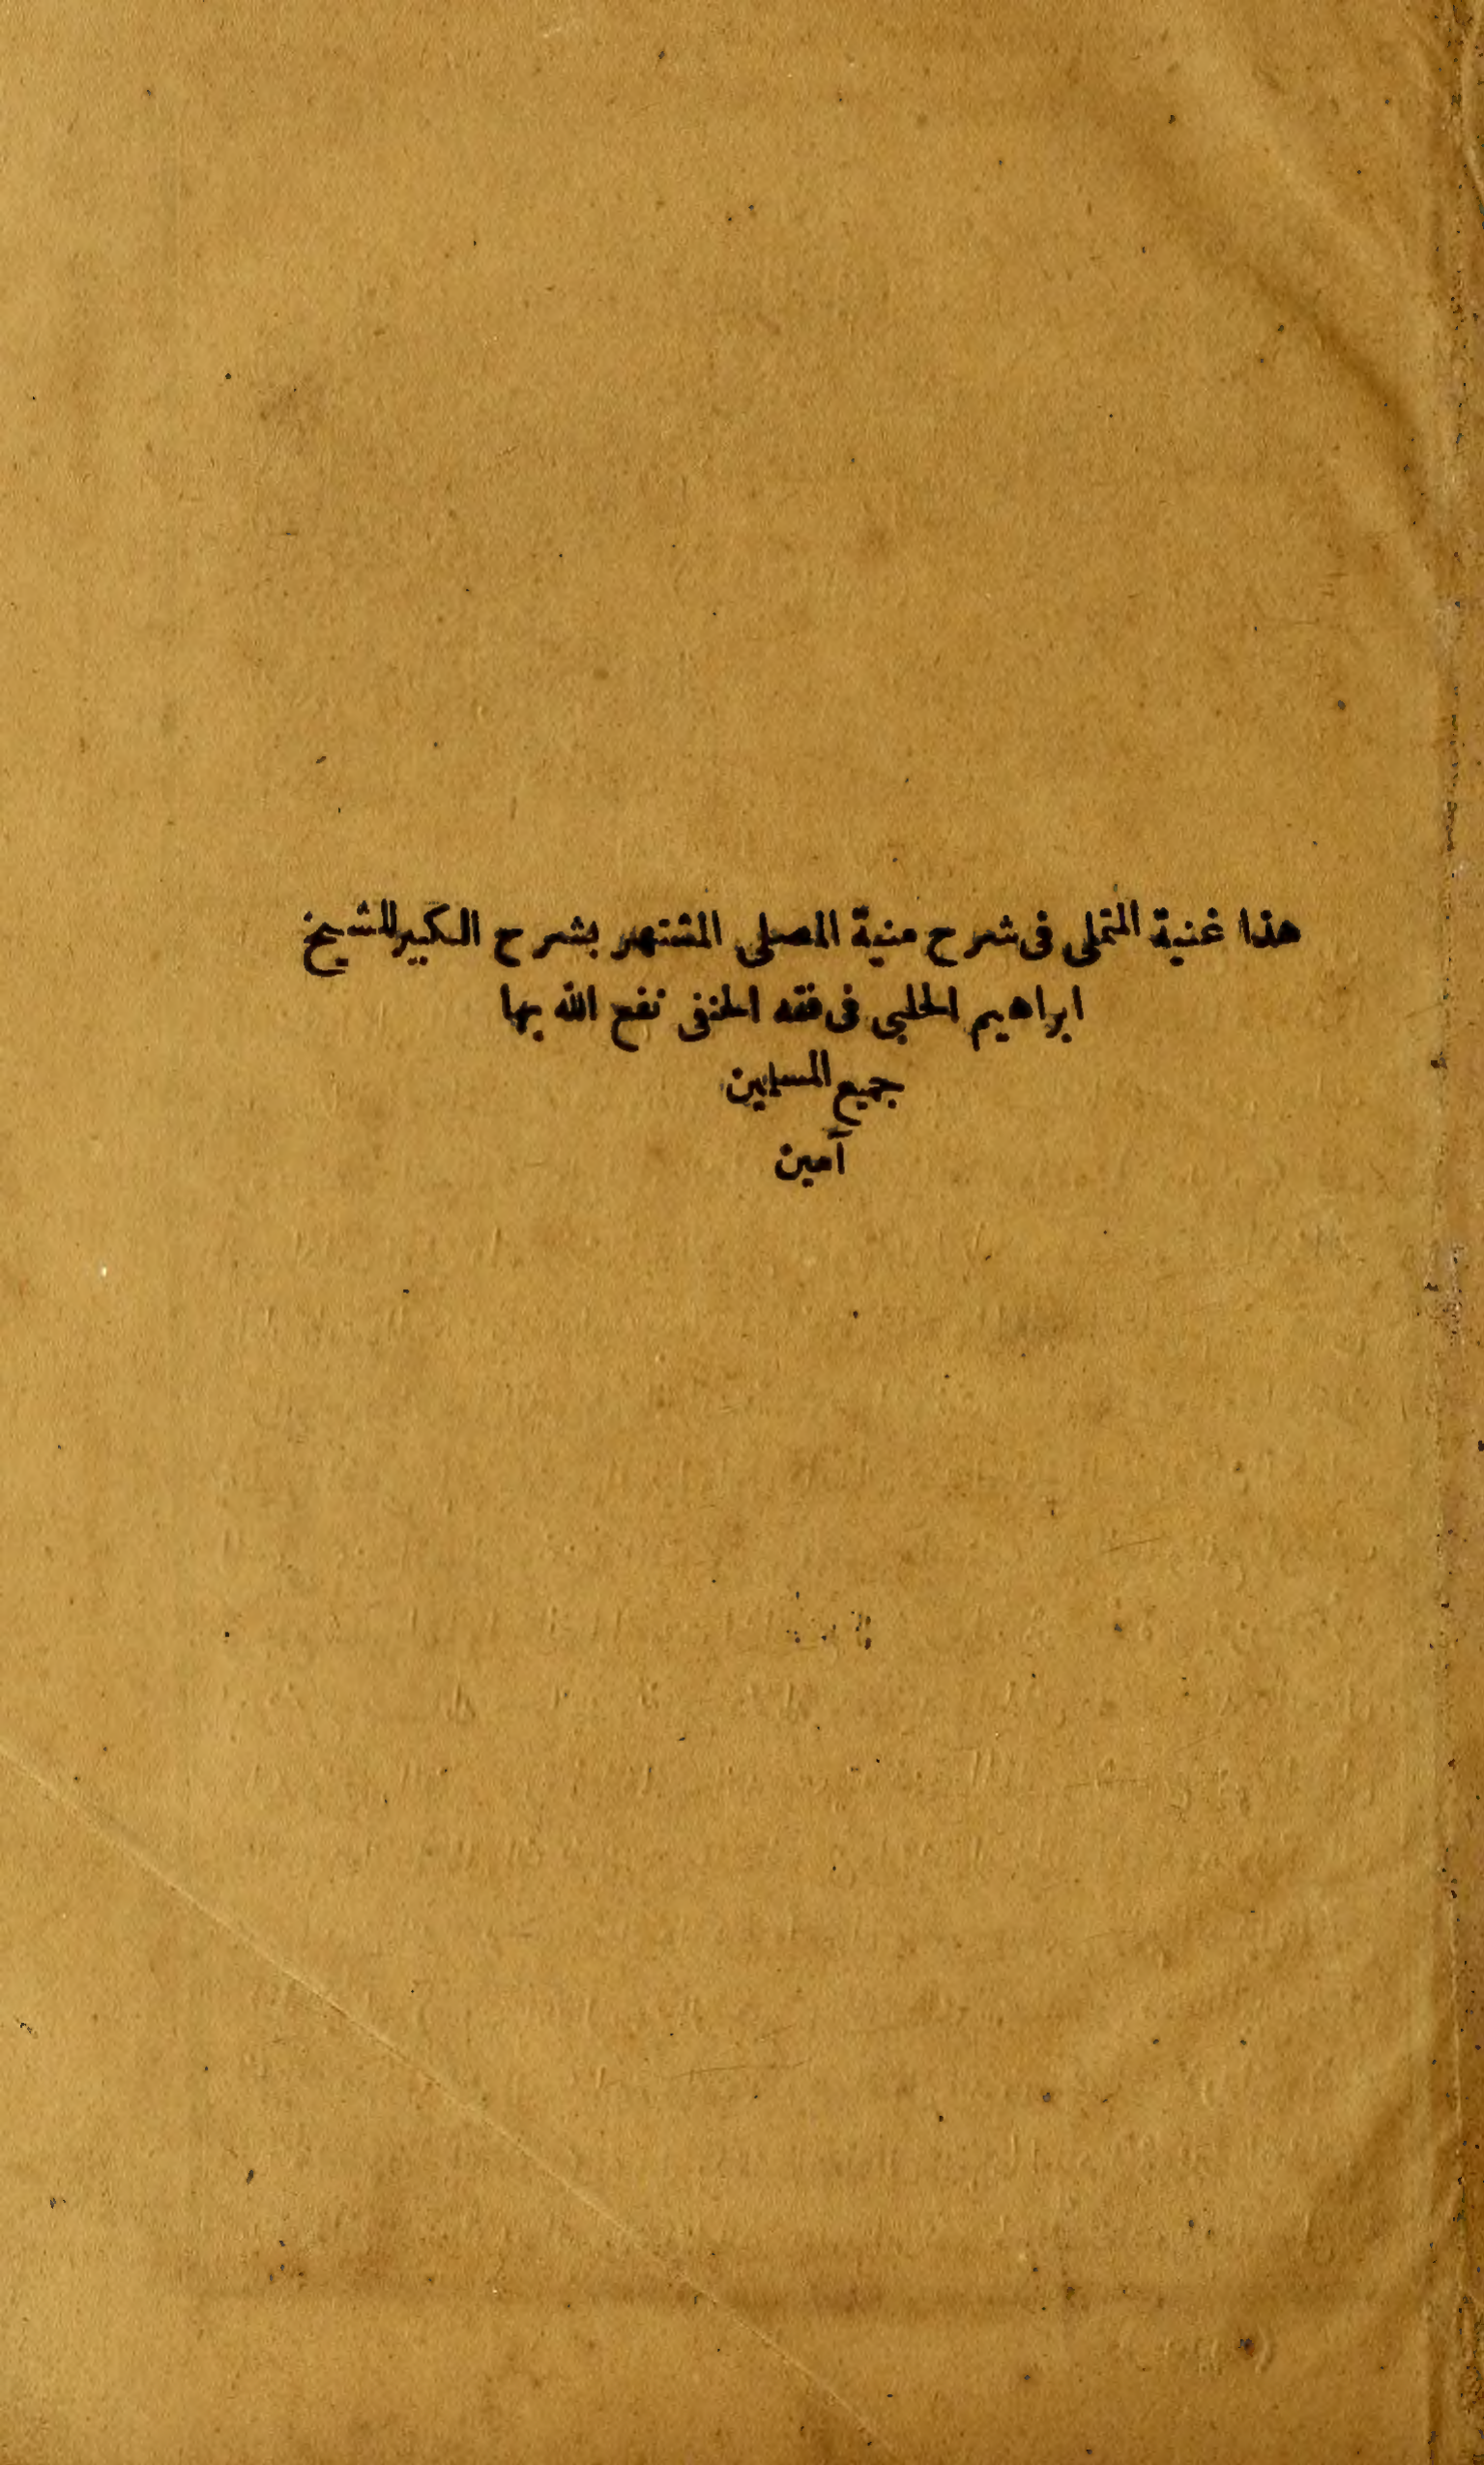 هذا غنية المتملى فى شرح منية المصلى المشتهر بشرح الكبير للشيخ
ابراهيم الحلبى فى فقه الحنفى نفع الله بها
جميع المسلمين
آمين